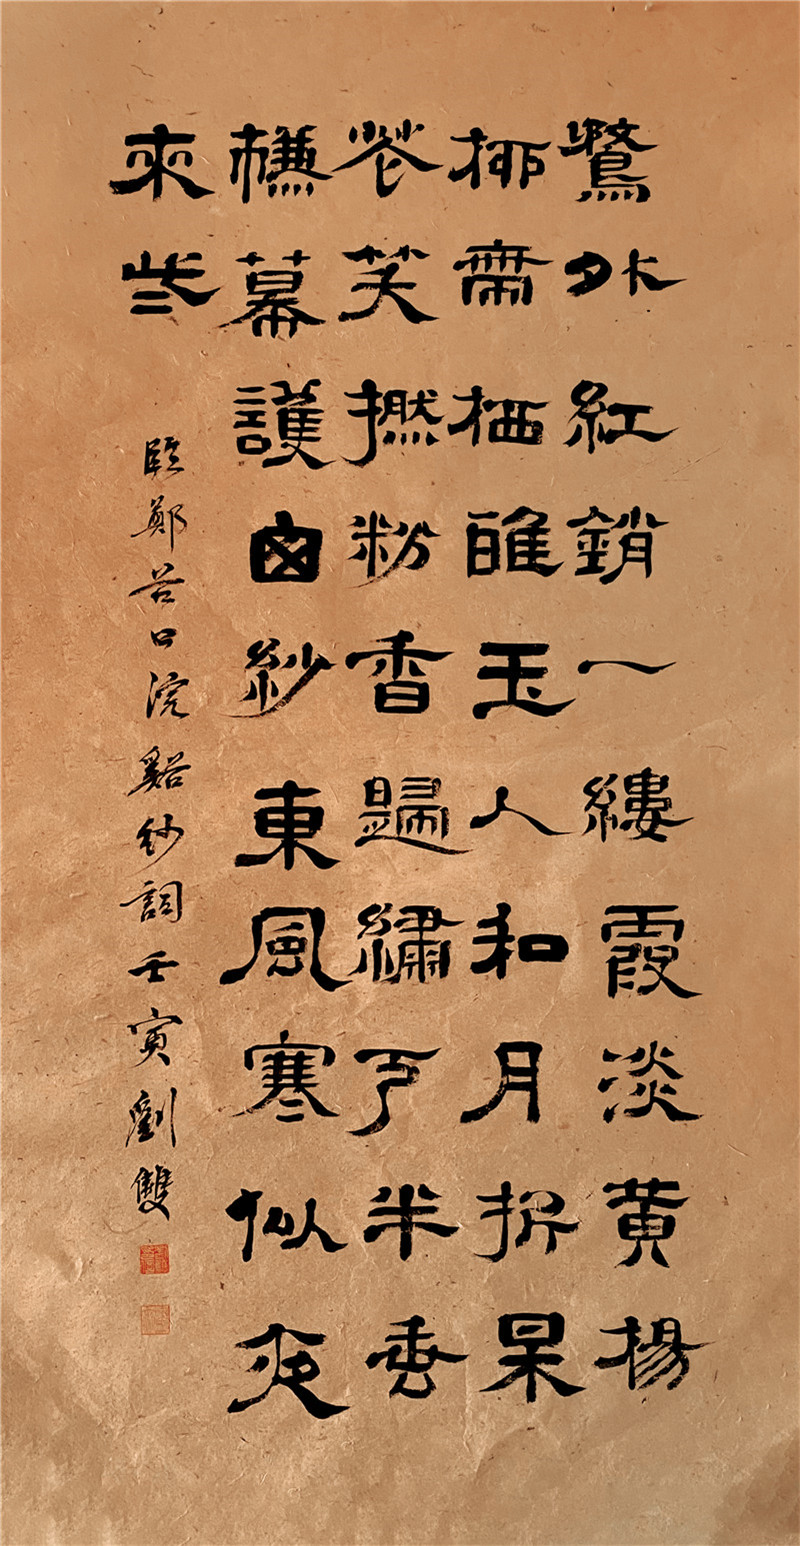 鶩外紅銷一縷霞淡黃楊
柳帶栖雅玉人和月折呆
花笑撚粉香歸繡戶半垂
槏幕護窗紗東風寒似夜
來些
臨鄭谷口浣谿紗詞壬寅劉雙